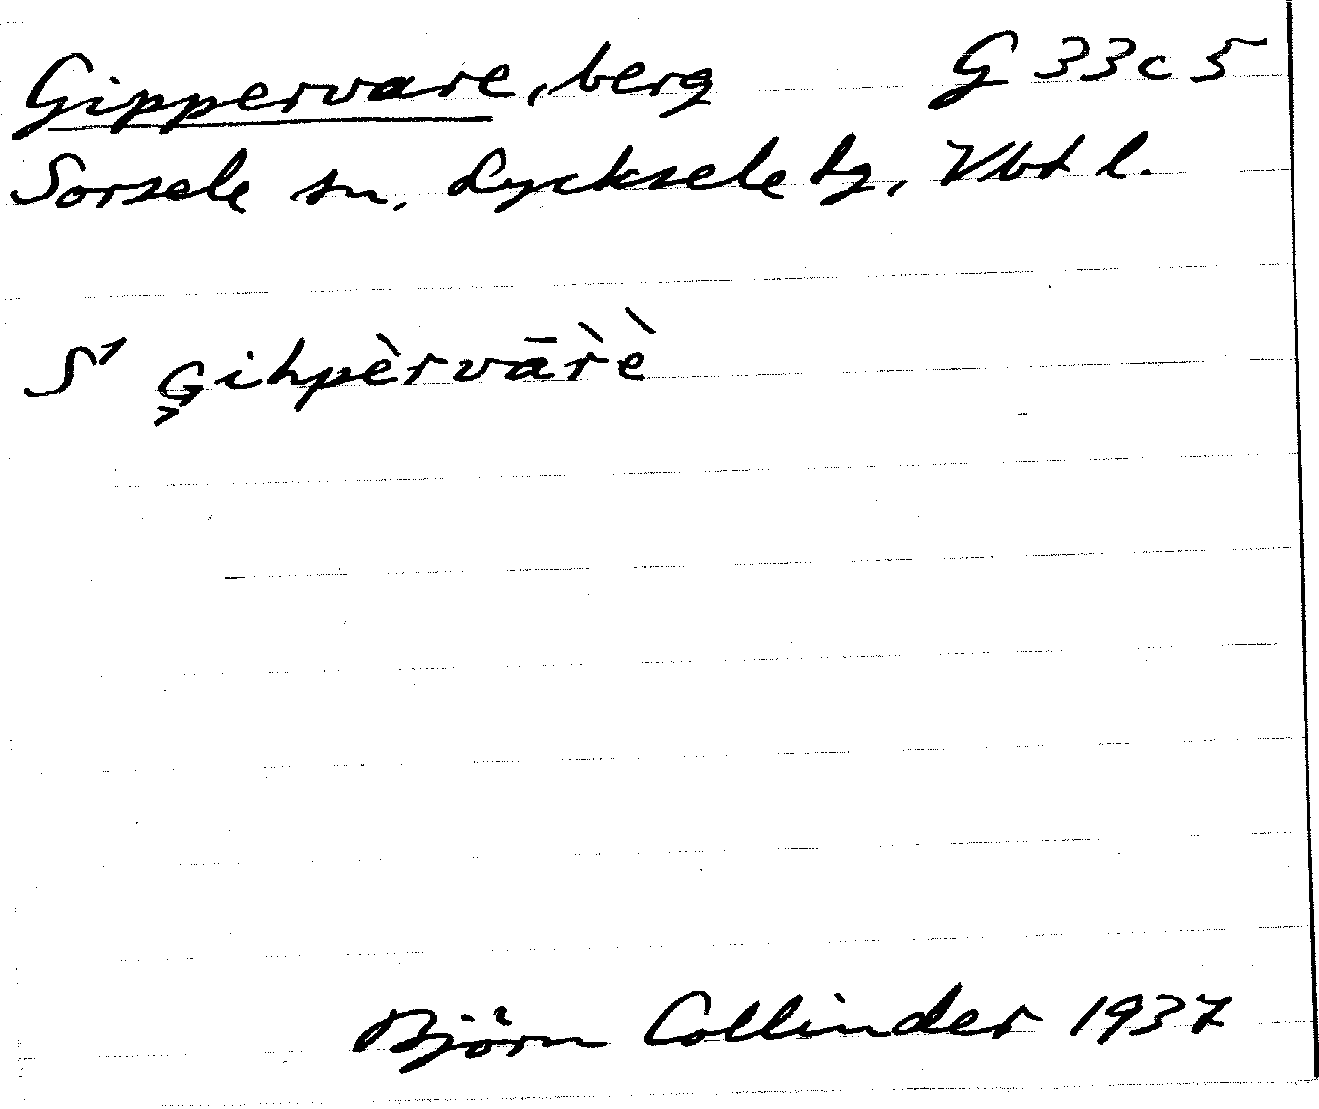 Gippervare, berg G 33c 5
Sorsele sn, Lycksele tg, Vbt l.
S' G̨ihpèrvār̀è
Björn Collinder 1937